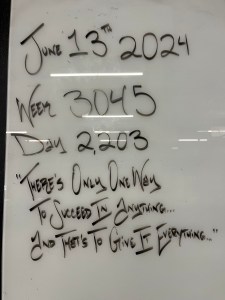 June 13th 2024
Week 3045
Day 2,203
"There's Only One Way
To Succeed In Anything...
And That's To Give It Everything..."